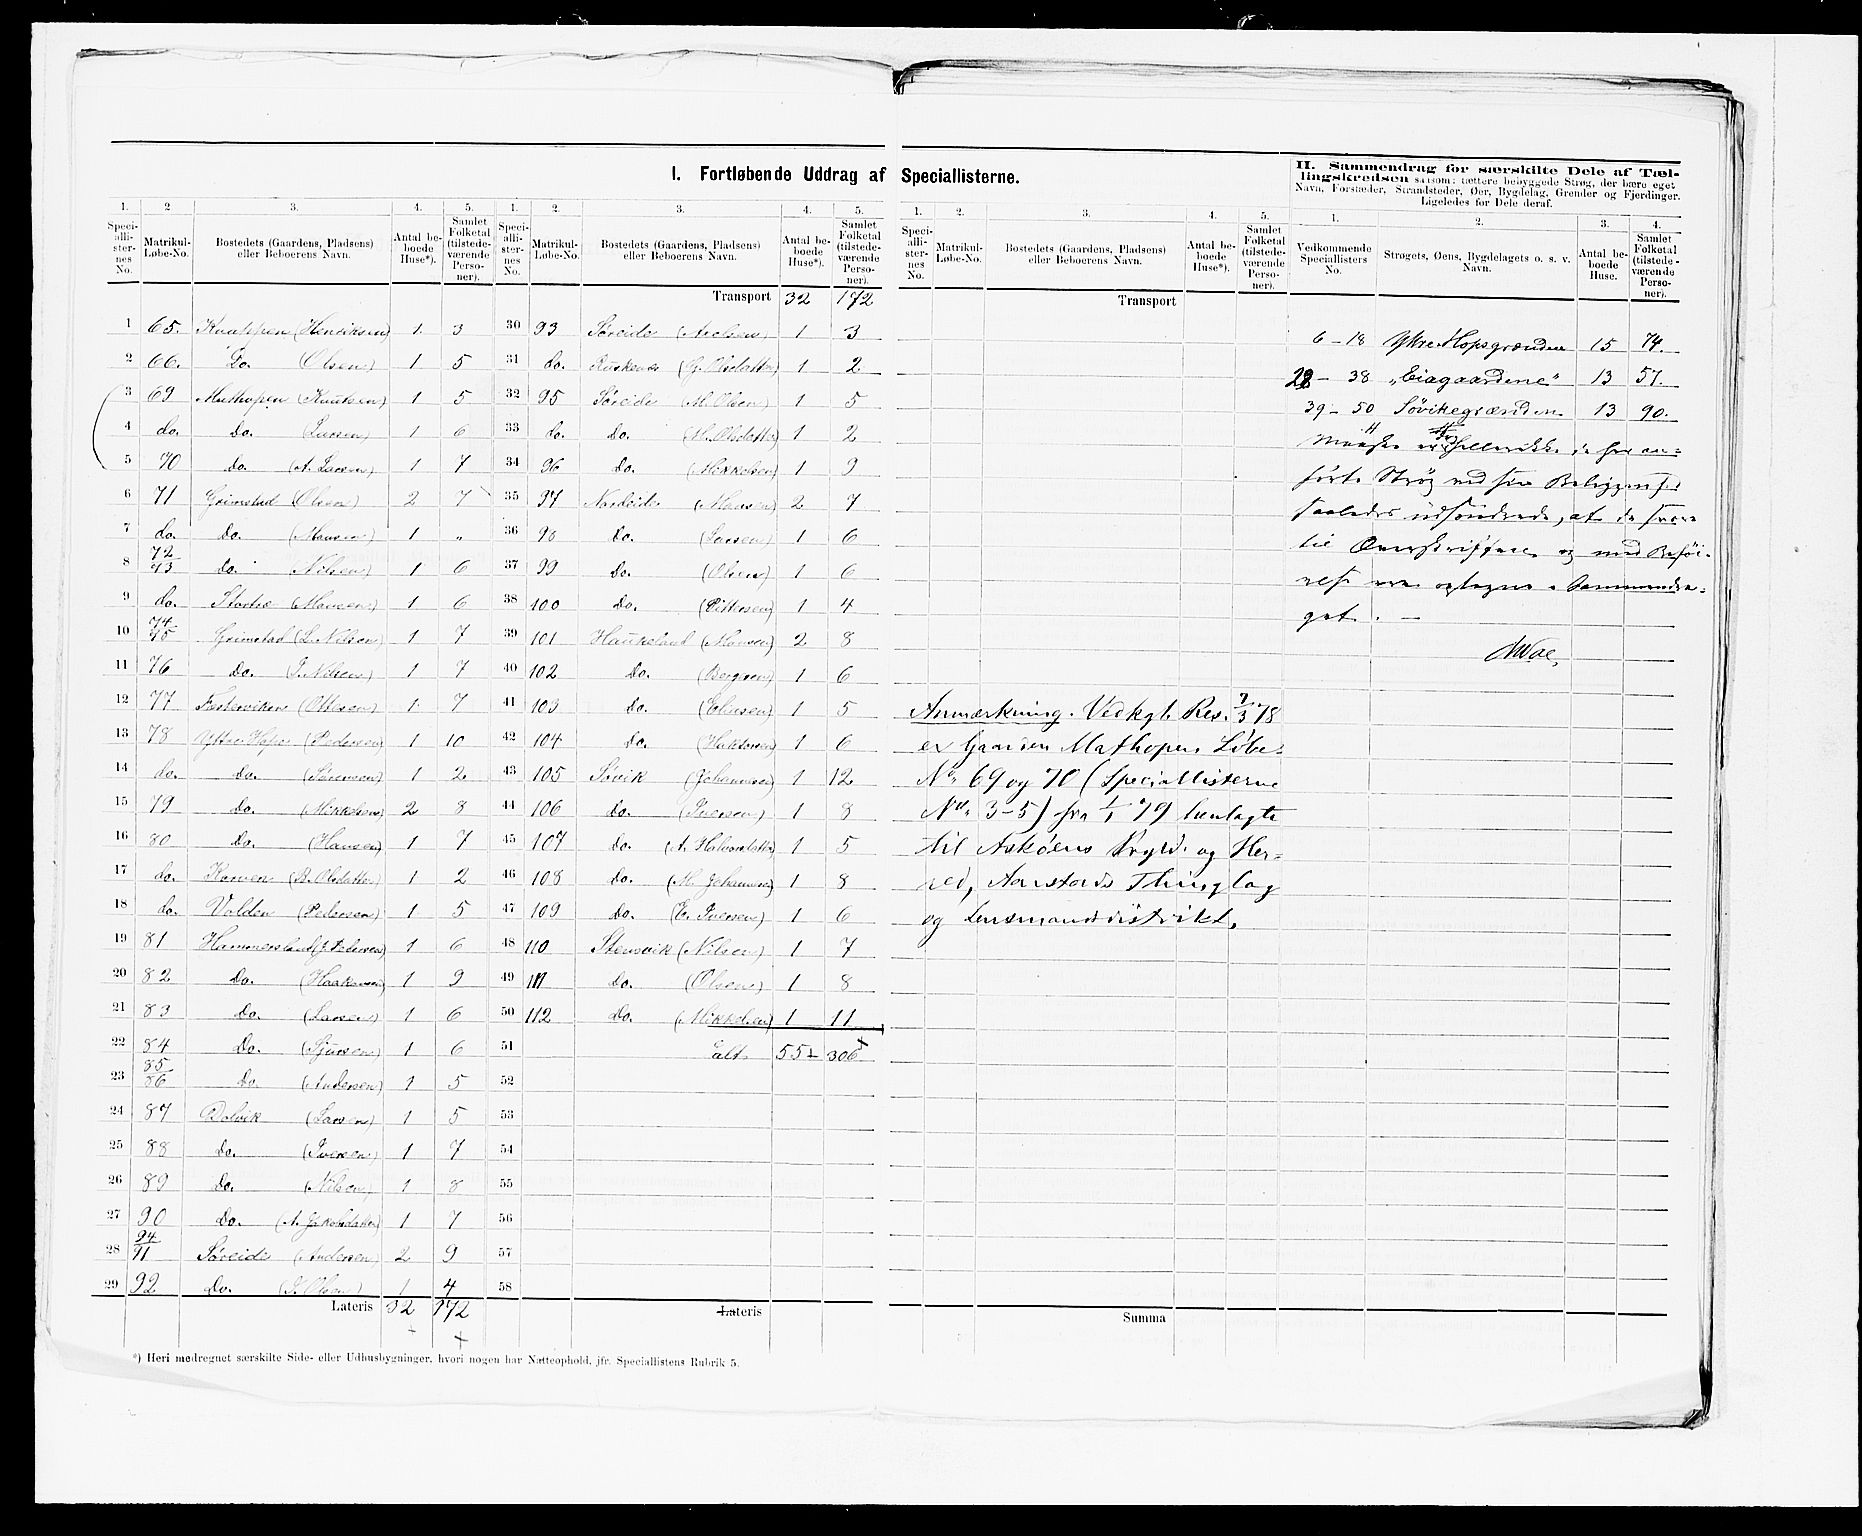 I. Fortløbende Uddrag af Speciallisterne.
II. Sammendrag for særskilte Dele af Tæl-
lingskredsen saasom: tættere bebyggede Strøg, der bære eget
Navn, Forstæder, Strandsteder, Øer, Bygdelag, Grender og Fjerdinger.
Ligeledes for Dele deraf.
1. 2. 3. 4. 5.
Speciallisternes No. Matrikul-Løbe-No. Bostedets (Gaardens, Pladsens) eller Beboerens Navn. Antal beboede Huse*). Samlet Folketal (tilstedeværende Personer).
1 65. Knappen (Henriksen) 1. 3
2 66. Do. (Olsen) 1 5
3 69 Mathopen (Knutsen) 1 5
4 do. Do. (Larsen) 1 6
5 70 Do. (A. Larsen) 1 7
6 71 Grimstad (Olsen) 2 7
7 do. Do. (Hansen) 1 "
8 72/73 do. (Nilsen) 1 6
9 do. (Monsen) 1 6
10 74/75 Grimstad (L. Nilsen) 1 7
11 76 Do. (J. Nilsen) 1 7
12 77 (Ottesen) 1 7
13 78 Yttre Hope (Pedersen) 1 10
14 do. Do. (Sørensen) 1 2
15 79 Do. (Mikkelsen) 2 8
16 80 Do. (Hansen) 1 7
17 do. (B. Olsdatter) 1 2
18 do. Volden (Pedersen) 1 5
19 81 Hammersland (J. Andersen) 1 6
20 82 Do. (Haaksen) 1 9
21 83 Do. (Larsen) 1 6
22 84 Do. (Sjursen) 1 6
23 85/86 Do. (Andersen) 1 5
24 87 Dolvik (Larsen) 1 5
25 88 Do. (Iversen) 1 7
26 89 Do. (Nilsen) 1 8
27 90 Do. (A. Jakobsdatter) 1 7
28 94/91 Søreide (Andersen) 2 9
29 92 Do. (J. Olsen) 1 4
Lateris 32 172
1. 2. 3. 4. 5.
Speciallisternes No. Matrikul-Løbe-No. Bostedets (Gaardens, Pladsens) eller Beboerens Navn. Antal beboede Huse*). Samlet Folketal (tilstedeværende Personer).
Transport 32 172
30 93 Søreide (Axelsen) 1 3
31 do. Ruskenes (G. Olsdatter) 1 2
32 95 Søreide (M. Olsen) 1 5
33 do. Do. (M. Olsdatter) 1 2
34 96 Do. (Mikkelsen) 1 9
35 97 Nordeide (Monsen) 2 7
36 98 Do. (Larsen) 1 6
37 99 Do. (Olsen) 1 6
38 100 Do. (Pettersen) 1 4
39 101 Haukeland (Monsen) 2 8
40 102 Do. (Bergesen) 1 6
41 103 Do. (Elusen) 1 5
42 104 Do. (Haktorsen) 1 6
43 105 Søvik (Johannesen) 1 12
44 106 Do. (Iversen) 1 8
45 107 Do. (A. Halvorsdatter) 1 5
46 108 Do. (M. Johannesen) 1 8
47 109 Do. (E. Iversen) 1 6
48 110 Stensvik (Nilsen) 1 7
49 111 Do. (Olsen) 1 8
50 112 Do. (Mikkelsen) 1 11
51 Ialt 55 306
52
53
54
55
56
57
58
Lateris
1. 2. 3. 4. 5.
Speciallisternes No. Matrikul-Løbe-No. Bostedets (Gaardens, Pladsens) eller Beboerens Navn. Antal beboede Huse*). Samlet Folketal (tilstedeværende Personer).
Transport
Anmærkning. Ved kgl. Res. 7/3 78
er Gaarden Mathopen Løbe-
No. 69 og 70 (Speciallisterne
No. 3-5) fra 1/1 79 henlagte
til Askøens Prgld. og Her-
red, Aarstads Thinglag
og Lensmandsdistrikt.
Summa
1. 2. 3. 4.
Vedkommende Speciallisters No. Strøgets, Øens, Bygdelagets o. s. v. Navn. Antal beboede Huse. Samlet Folketal (tilstedeværende Personer).
6 - 18 Ytre Hopsgrænden 15 74.
28 - 38 „Eiagaardene" 13 57.
39 - 50 Søvikegrænden 13 90.
heller ikke de her an-
førte Strøg ved sin Beliggenhed
saaledes udsondrede, at de svare
til Overskriften og med Beføi-
else optagne i Sammendra-
get. -
*) Heri medregnet særskilte Side- eller Udhusbygninger, hvori nogen har Natteophold, jfr. Speciallistens Rubrik 5.